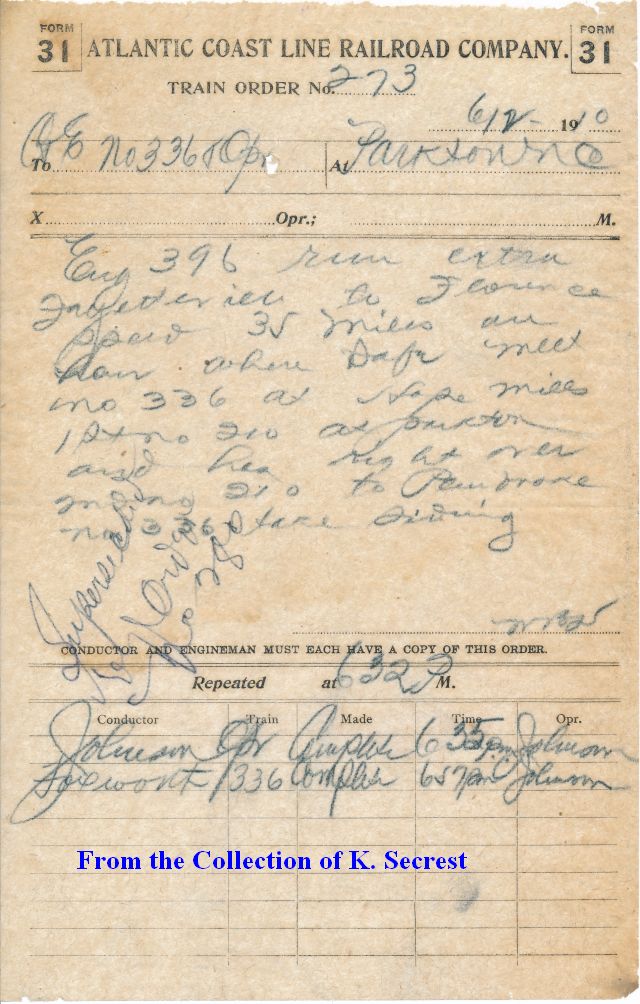 FORM 31 ATLANTIC COAST LINE RAILROAD COMPANY. FORM 31
TRAIN ORDER No. 273
6/12 1910
To C&E No 336 & Opr At Parkton N C
X Opr.; M.
Eng 396 run extra
Fayetteville to Florence
speed 35 miles an
hour where safe meet
no 336 at Hope Mills
1st no 210 at Parkton
and has right over
no 210 to Pembroke
no 336 take siding
Superseded
by Order
No
CONDUCTOR AND ENGINEMAN MUST EACH HAVE A COPY OF THIS ORDER.
Repeated at 632 P M.
Conductor Train Made Time Opr.
Johnson Opr Complete 635 pm Johnson
Foxworth 336 Complete 657 pm Johnson
From the Collection of K. Secrest